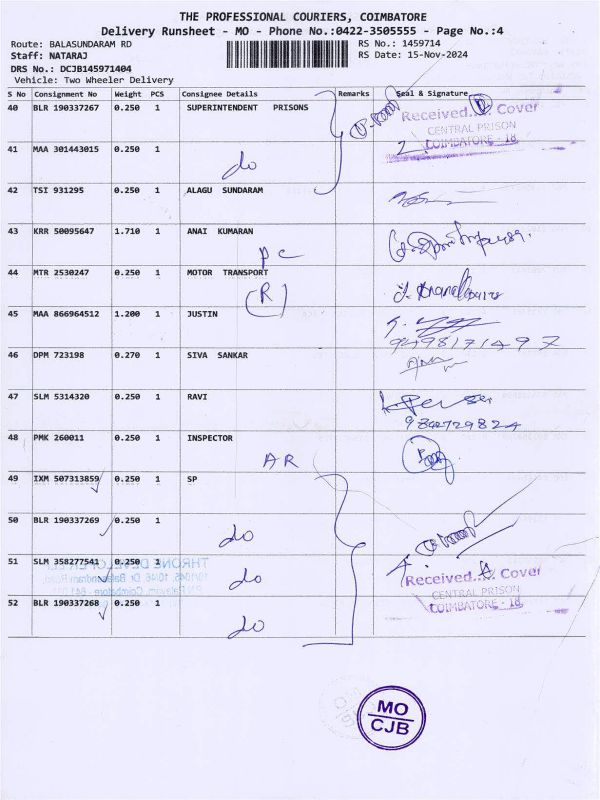 THE PROFESSIONAL COURIERS, COIMBATORE
Delivery Runsheet - MO - Phone No.:0422-3505555 - Page No.:4
Route: BALASUNDARAM RD
RS No.: 1459714
Staff: NATARAJ
RS Date: 15-Nov-2024
DRS No.: DCJB145971404
Vehicle: Two Wheeler Delivery
S No Consignment No Weight PCS Consignee Details Remarks Seal & Signature
40 BLR 190337267 0.250 1 SUPERINTENDENT PRISONS
Received.... Cover
CENTRAL PRISON
COIMBATORE - 18
41 MAA 301443015 0.250 1
do
2
42 TSI 931295 0.250 1 ALAGU SUNDARAM
43 KRR 50095647 1.710 1 ANAI KUMARAN
PC
44 MTR 2530247 0.250 1 MOTOR TRANSPORT
(R)
45 MAA 866964512 1.200 1 JUSTIN
9498171497
46 DPM 723198 0.270 1 SIVA SANKAR
47 SLM 5314320 0.250 1 RAVI
48 PMK 260011 0.250 1 INSPECTOR
AR
49 IXM 507313859 0.250 1 SP
50 BLR 190337269 0.250 1
do
51 SLM 358277541 0.250 1
do
Received.... Cover
CENTRAL PRISON
COIMBATORE - 18
52 BLR 190337268 0.250 1
do
MO
CJB